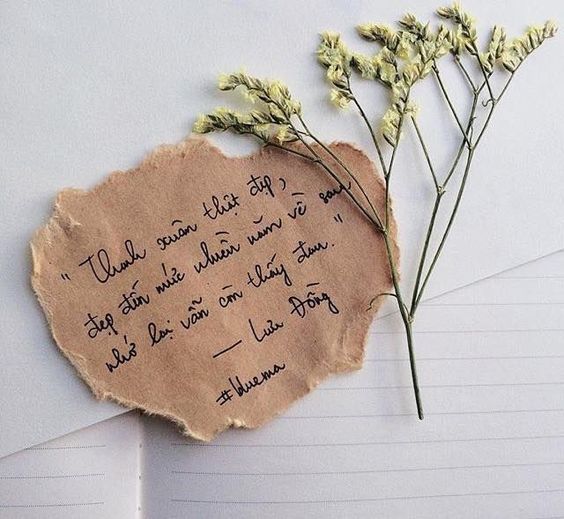 "Thanh xuân thật đẹp,
đẹp đến mức nhiều năm về sau
nhớ lại vẫn còn thấy đau."
— Lưu Đồng
#bluema